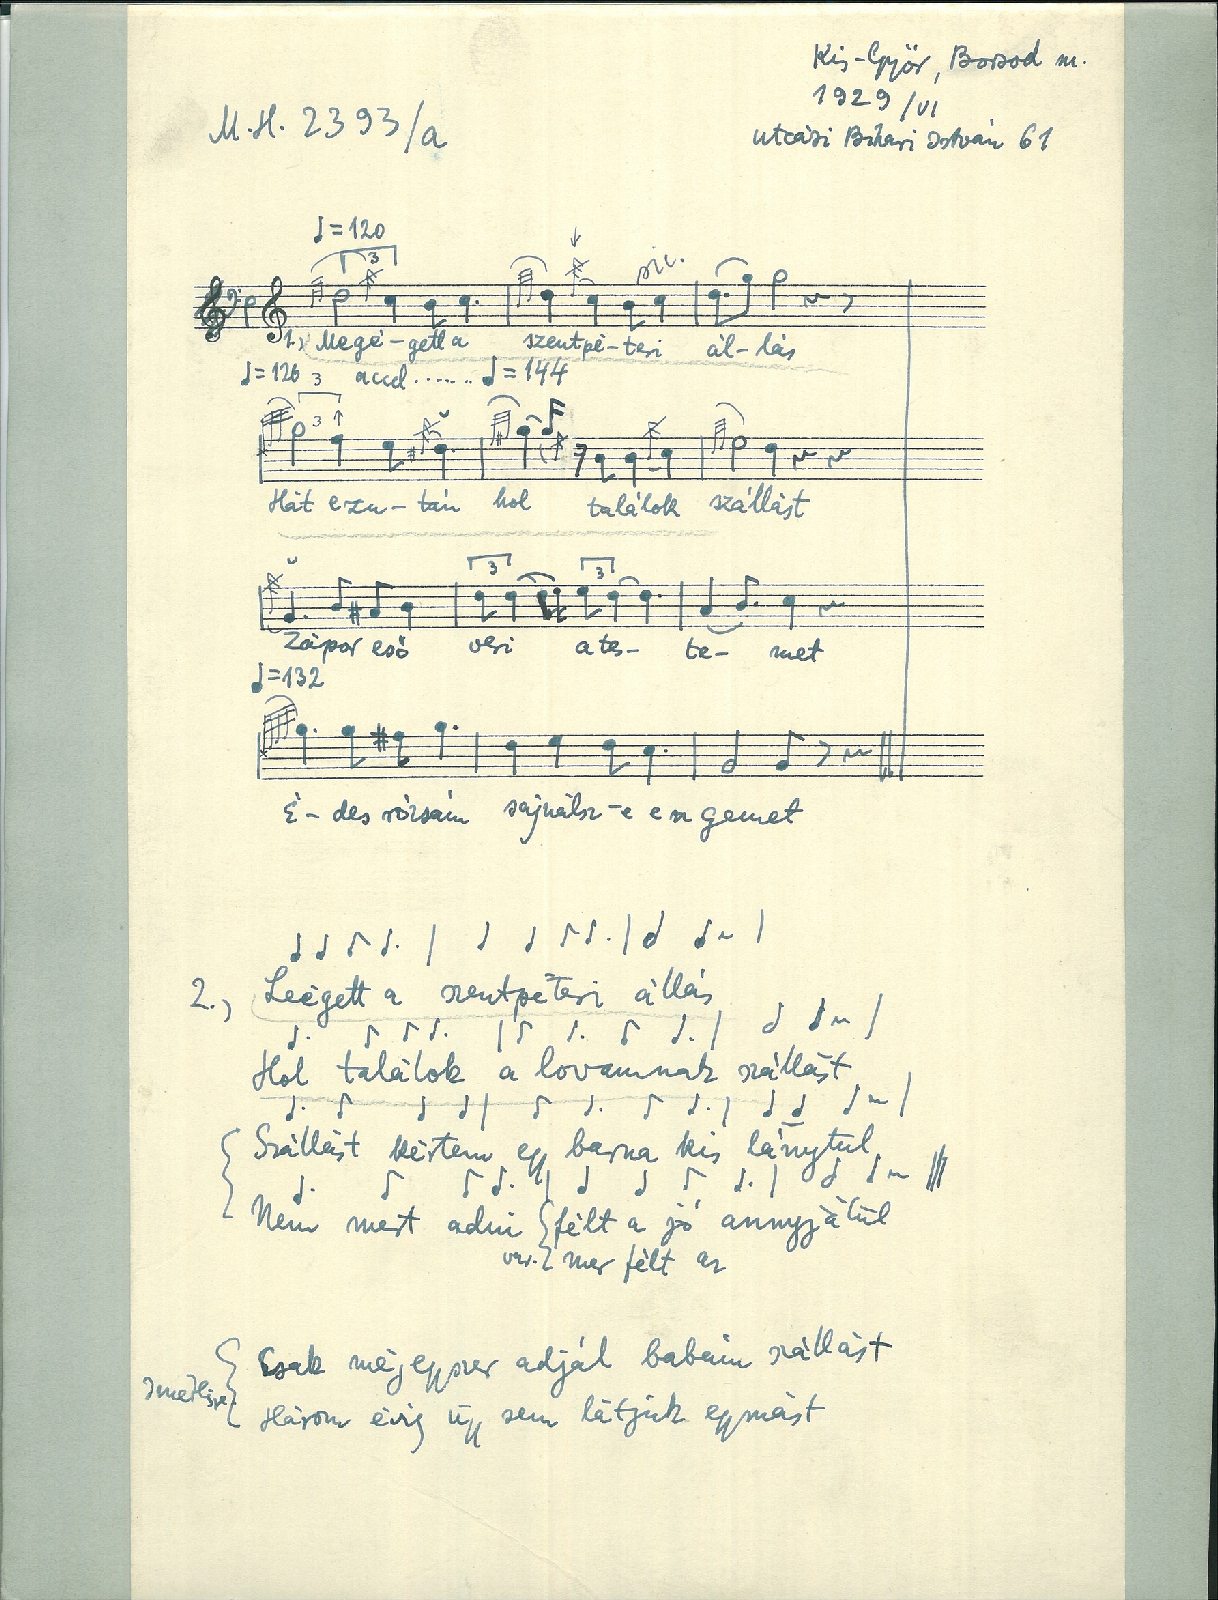 Kis-Győr, Borsod m.
1929/VI
M.H. 2393/a
utcázi Bihari István 61
♩=120
3
sic.
1.) Megé-gett a szentpé-teri ál-lás
♩=126 3 accel....... ♩=144
3
Hát ezu-tán hol találok szállást
3 3
Zápor eső veri a tes- te- met
♩=132
É-des rózsám sajnálsz-e engemet
2., Leégett a szentpéteri állás
Hol találok a lovamnak szállást
Szállást kértem egy barna kis lánytul
Nem mert adni félt a jó annyjátúl
var. mer félt az
Csak mégegyszer adjál babám szállást
Három évig úgy sem látjuk egymást